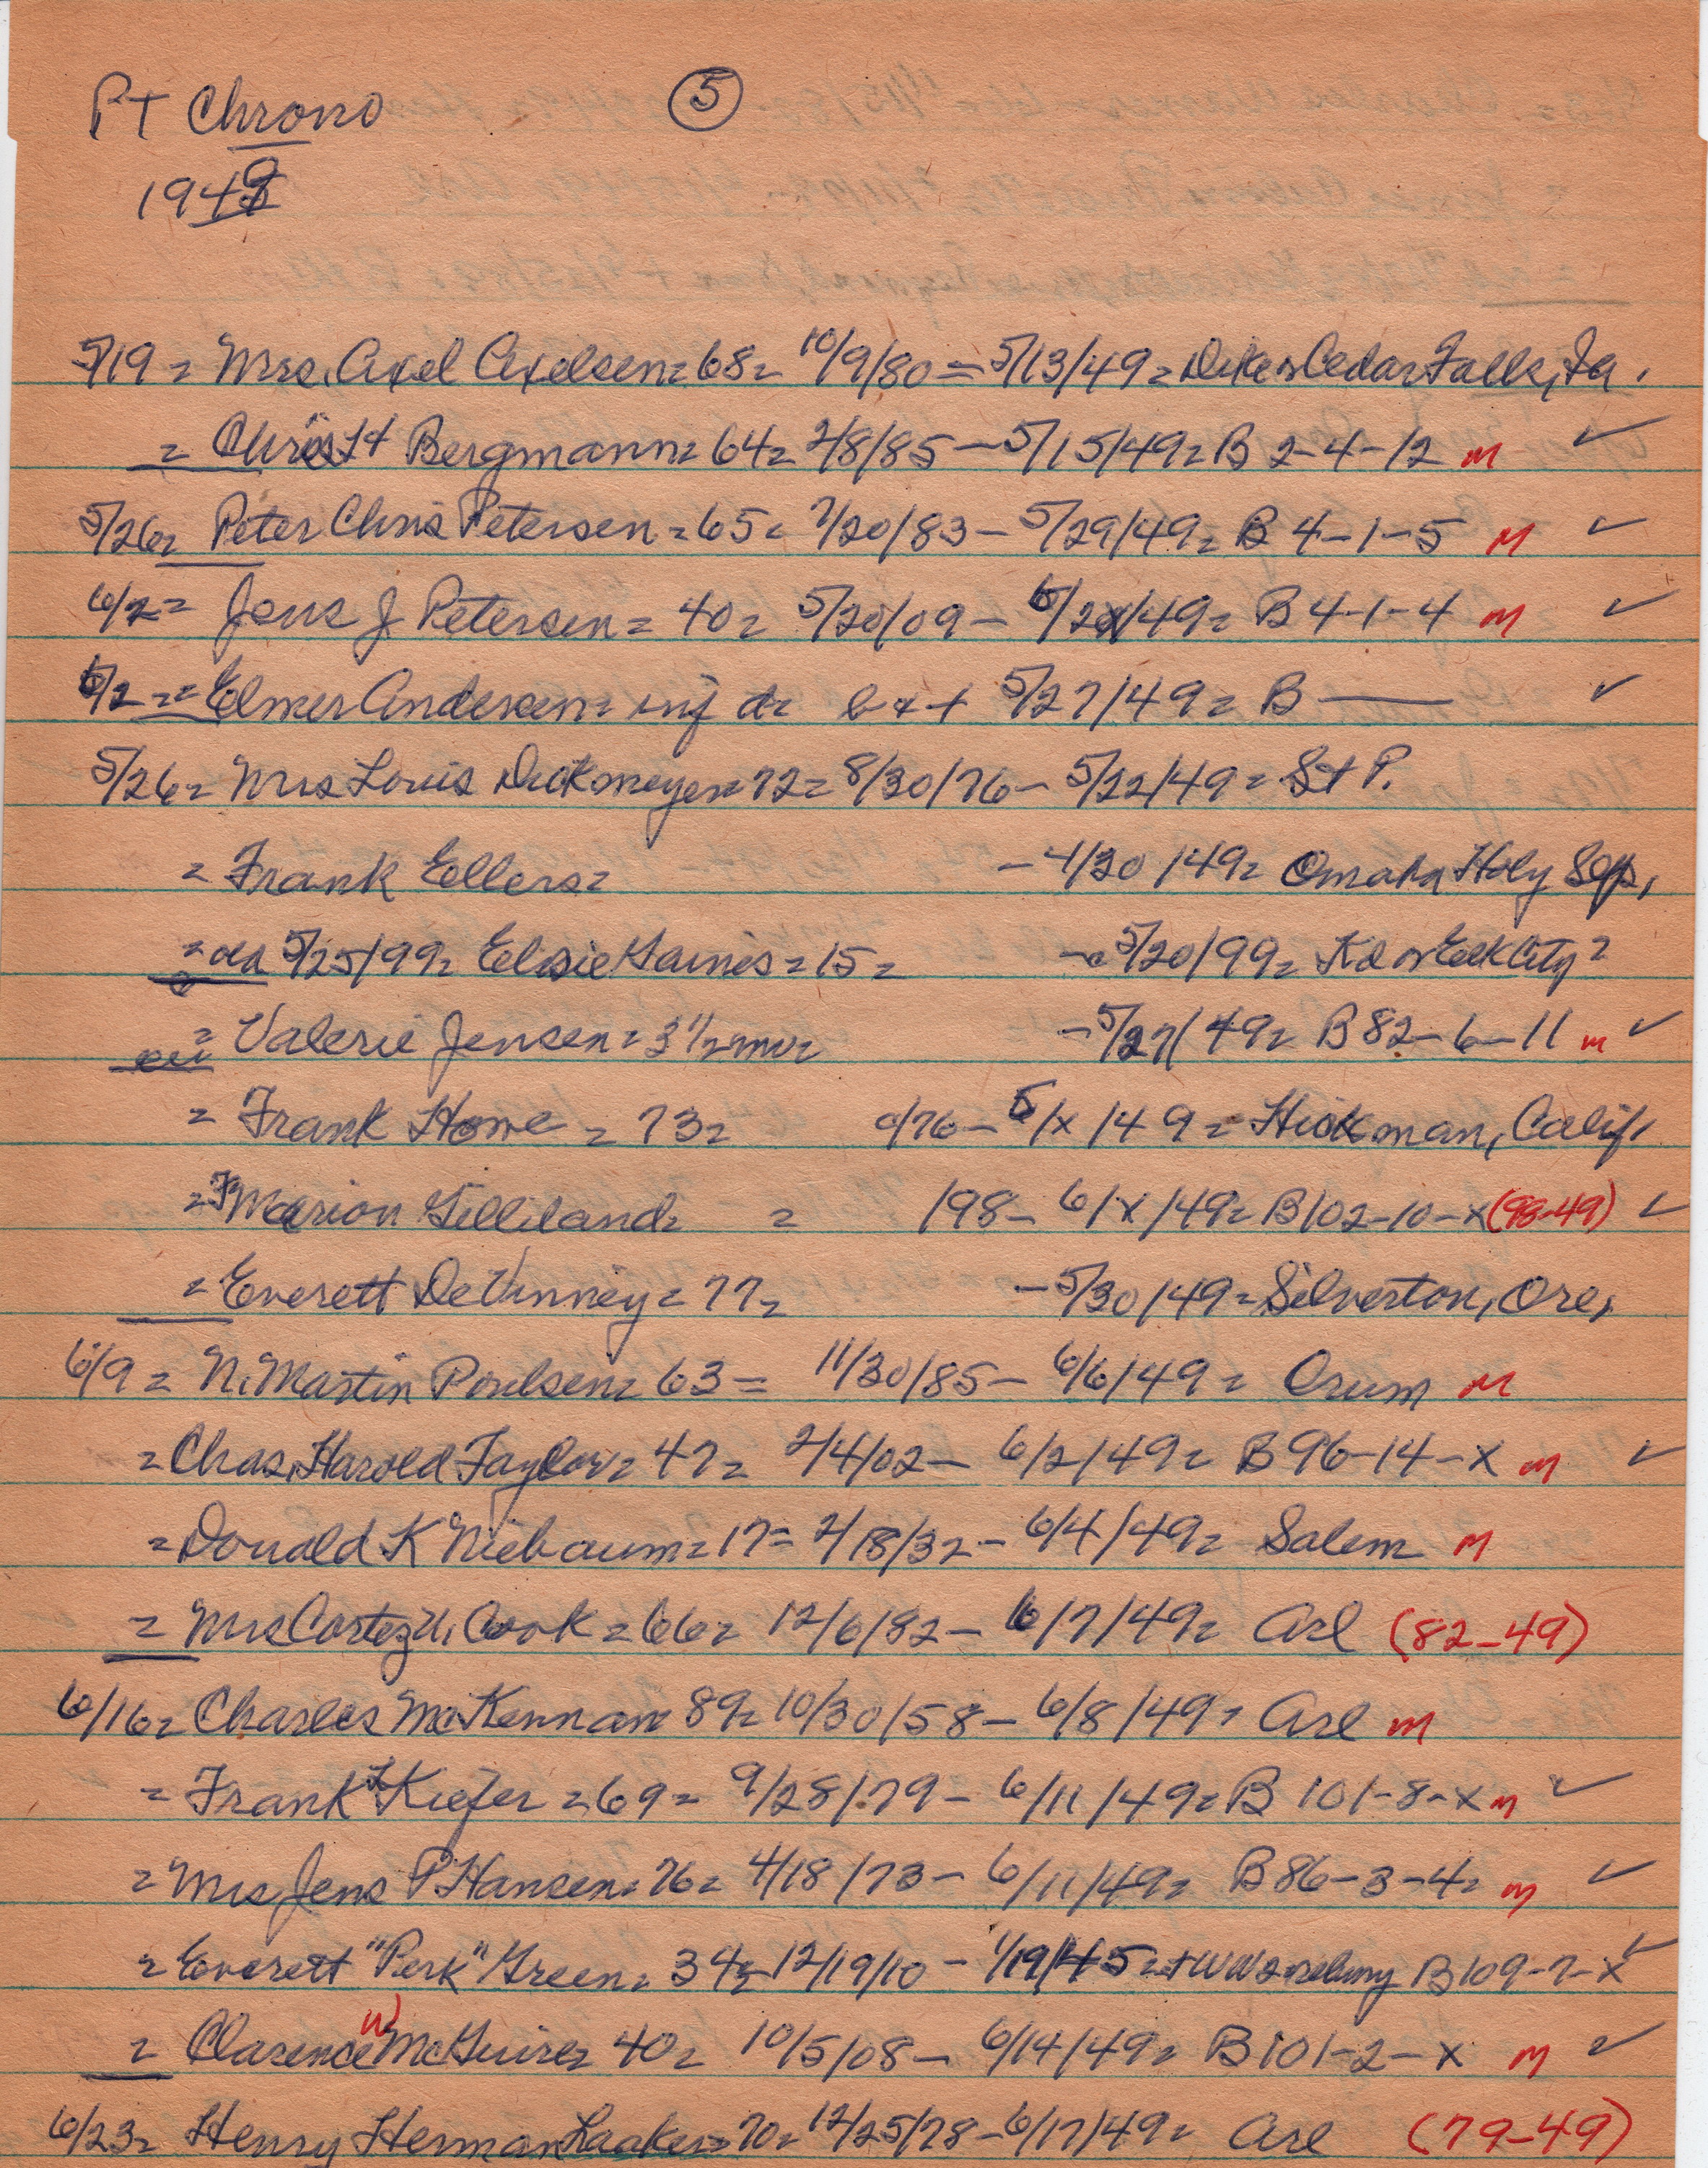 Pt Chrono ⑤
1949
5/19 = Mrs. Axel Axelsen = 68 = 10/9/80 = 5/13/49 = Dike or Cedar Falls, Ia.
= Chris H Bergmann = 64 = 2/8/85 - 5/15/49 = B 2-4-12 M ✓
5/26 = Peter Chris Petersen = 65 = 7/20/83 - 5/29/49 = B 4-1-5 M ✓
6/2 = Jens J Petersen = 40 = 5/20/09 - 5/2x/49 = B 4-1-4 M ✓
6/2 = = Elmer Andersen = inf d = b + t 5/27/49 = B — ✓
5/26 = Mrs Louis Dickmeyer = 72 = 8/30/76 - 5/22/49 = St P.
= Frank Eellers = - 4/30/49 = Omaha Holy Sep.
= 5/25/99 = Elsie Gaines = 15 = - 5/20/99 = Kd or Elk City ?
= Valerie Jensen = 3 1/2 mo = - 5/27/49 = B 82-6-11 M ✓
= Frank Howe = 73 = c/76 - 5/x/49 = Hickman, Calif.
= F Marion Gilliland = = /98 - 6/x/49 = B 102-10-x (98-49) ✓
= Everett DeVinney = 77 = - 5/30/49 = Silverton, Ore.
6/9 = N. Martin Poulsen = 63 = 11/30/85 - 6/6/49 = Orum M
= Chas. Harold Taylor = 47 = 2/4/02 - 6/2/49 = B 96-14-x M ✓
= Donald K Niebaum = 17 = 2/18/32 - 6/4/49 = Salem M
= Mrs Cortez U. Cook = 66 = 12/6/82 - 6/7/49 = Arl (82-49)
6/16 = Charles McKennan = 89 = 10/30/58 - 6/8/49 = Arl M
= Frank L Kiefer = 69 = 9/28/79 - 6/11/49 = B 101-8-x M ✓
= Mrs Jens P Hansen = 76 = 4/18/73 - 6/11/49 = B 86-3-4 = M ✓
= Everett "Perk" Green = 34 = 12/19/10 - 1/19/45 = + WW2 reburry B 109-7-x ✓
= Clarence W McGuire = 40 = 10/5/08 - 6/14/49 = B 101-2-x M ✓
6/23 = Henry Herman Laaker = 70 = 12/25/78 - 6/17/49 = Arl (79-49)